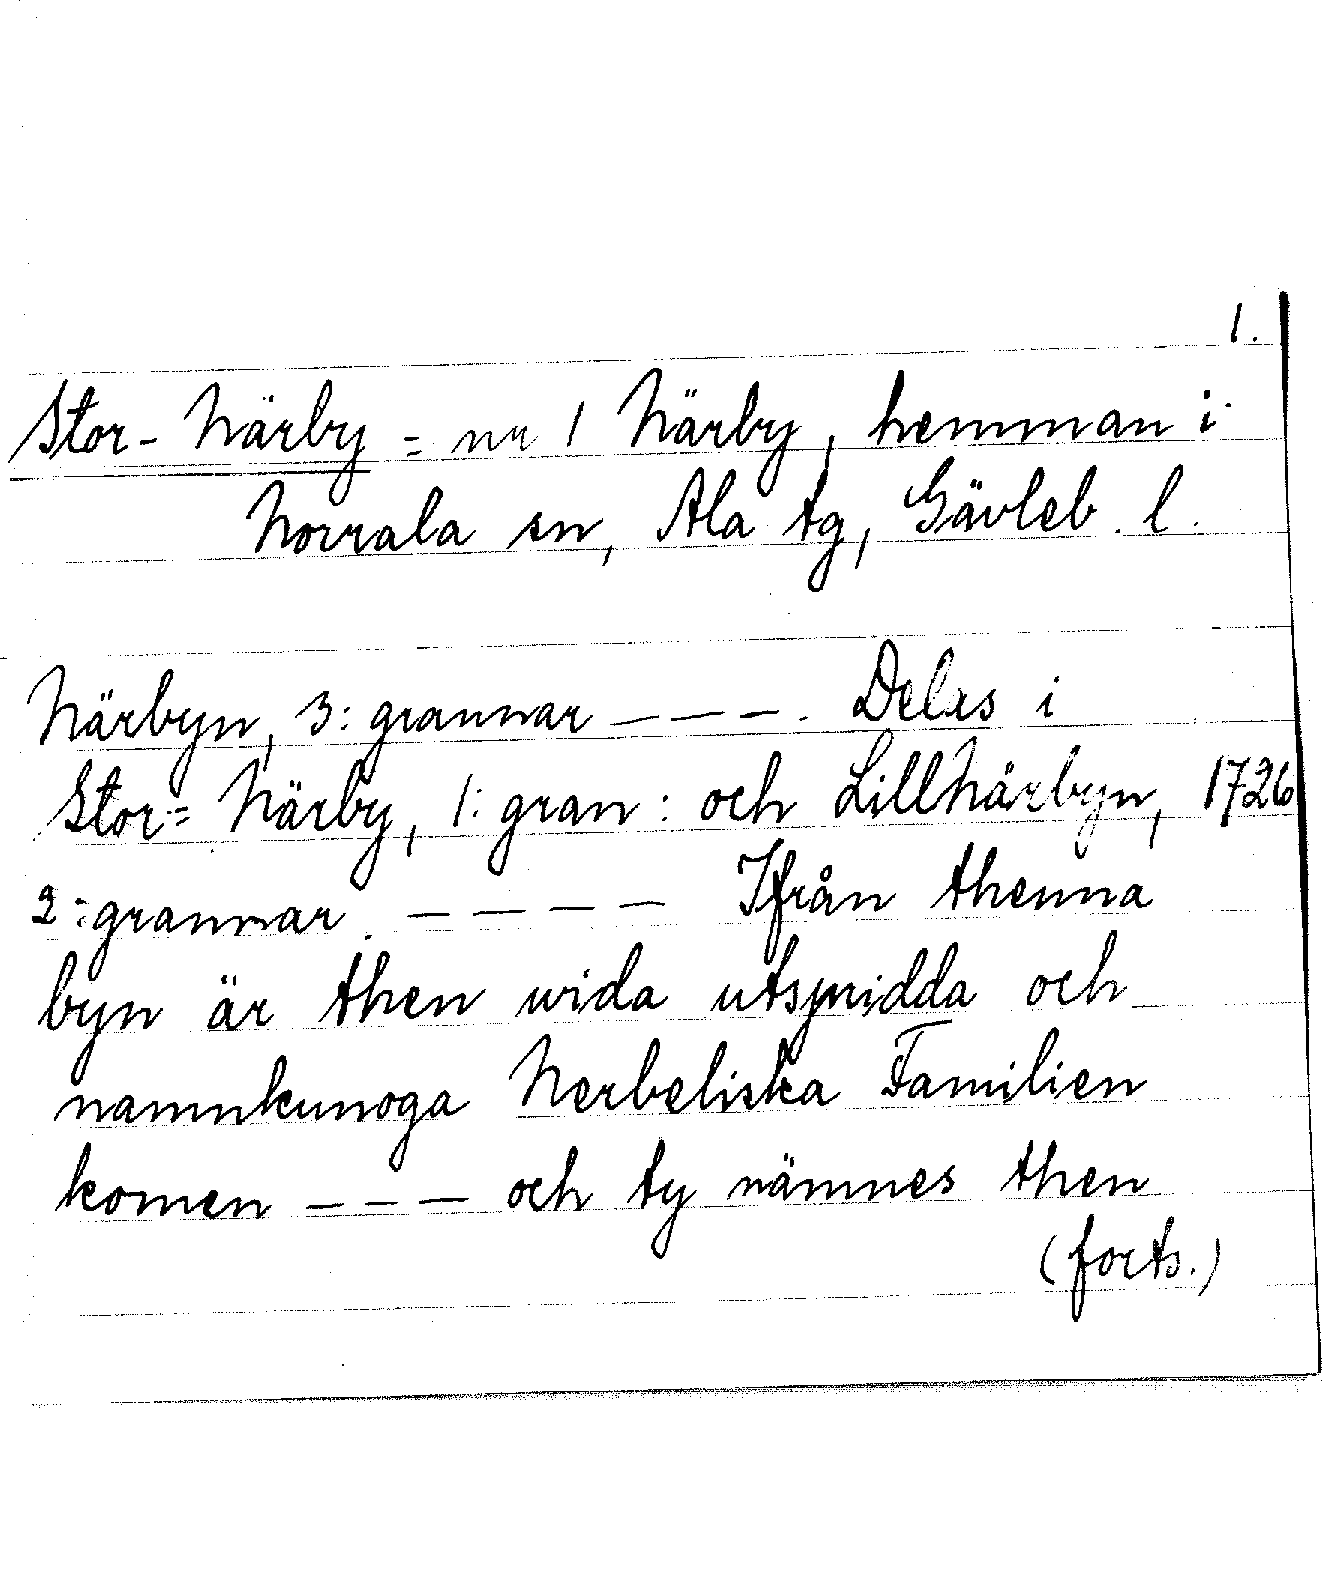 1.
Stor-Närby = nr 1 Närby, hemman i
Norrala sn, Ala tg, Gävleb. l.
Närbyn, 3: grannar – – – . Delas i
Stor= Närby, 1: gran: och LillNärbyn, 1726
2: grannar. – – – – Ifrån thenna
byn är then wida utspridda och
namnkunoga Nerbeliska Familien
komen – – – och ty nämnes then
(forts.)